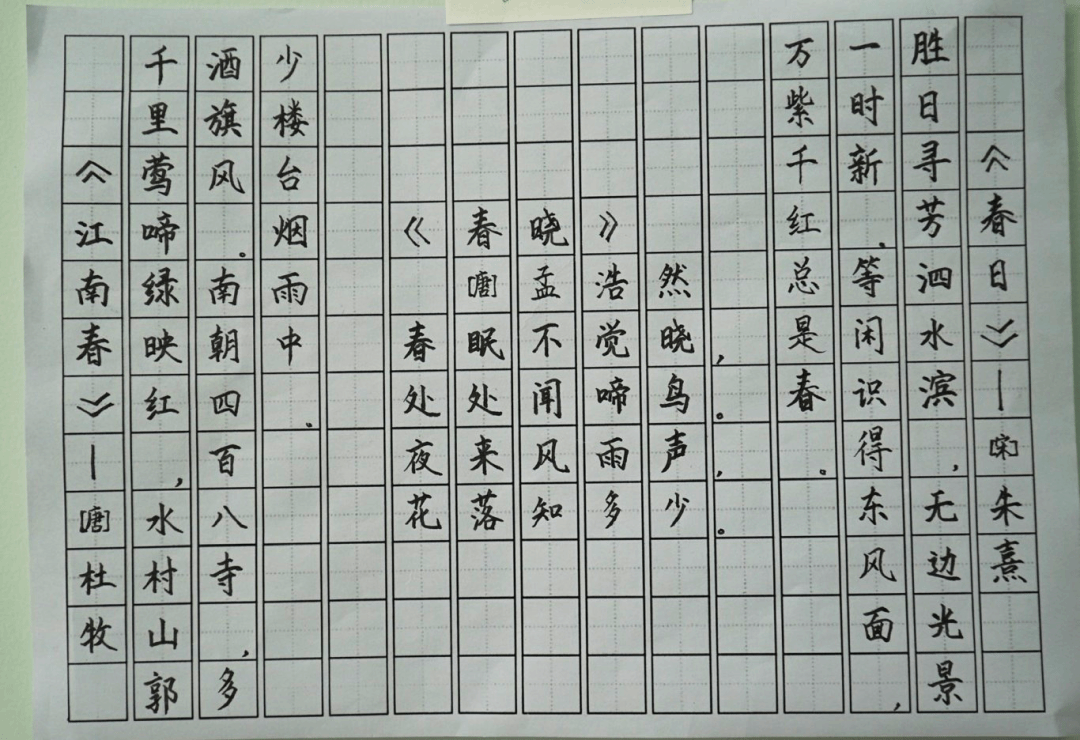 《春日》—[宋]朱熹
胜日寻芳泗水滨，无边光景
一时新。等闲识得东风面，
万紫千红总是春。
《春晓》
[唐]孟浩然
春眠不觉晓，
处处闻啼鸟。
夜来风雨声，
花落知多少。
《江南春》—[唐]杜牧
千里莺啼绿映红，水村山郭
酒旗风。南朝四百八寺，多
少楼台烟雨中。